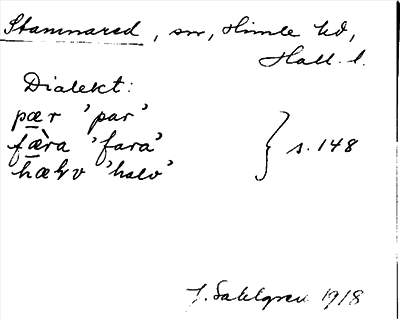 Stamnared, sn, Himle hd,
Hall. l.
Dialekt:
pær 'par'
fæ̀ra 'fara' } s. 148
hælv 'halv'
J. Sahlgren 1918